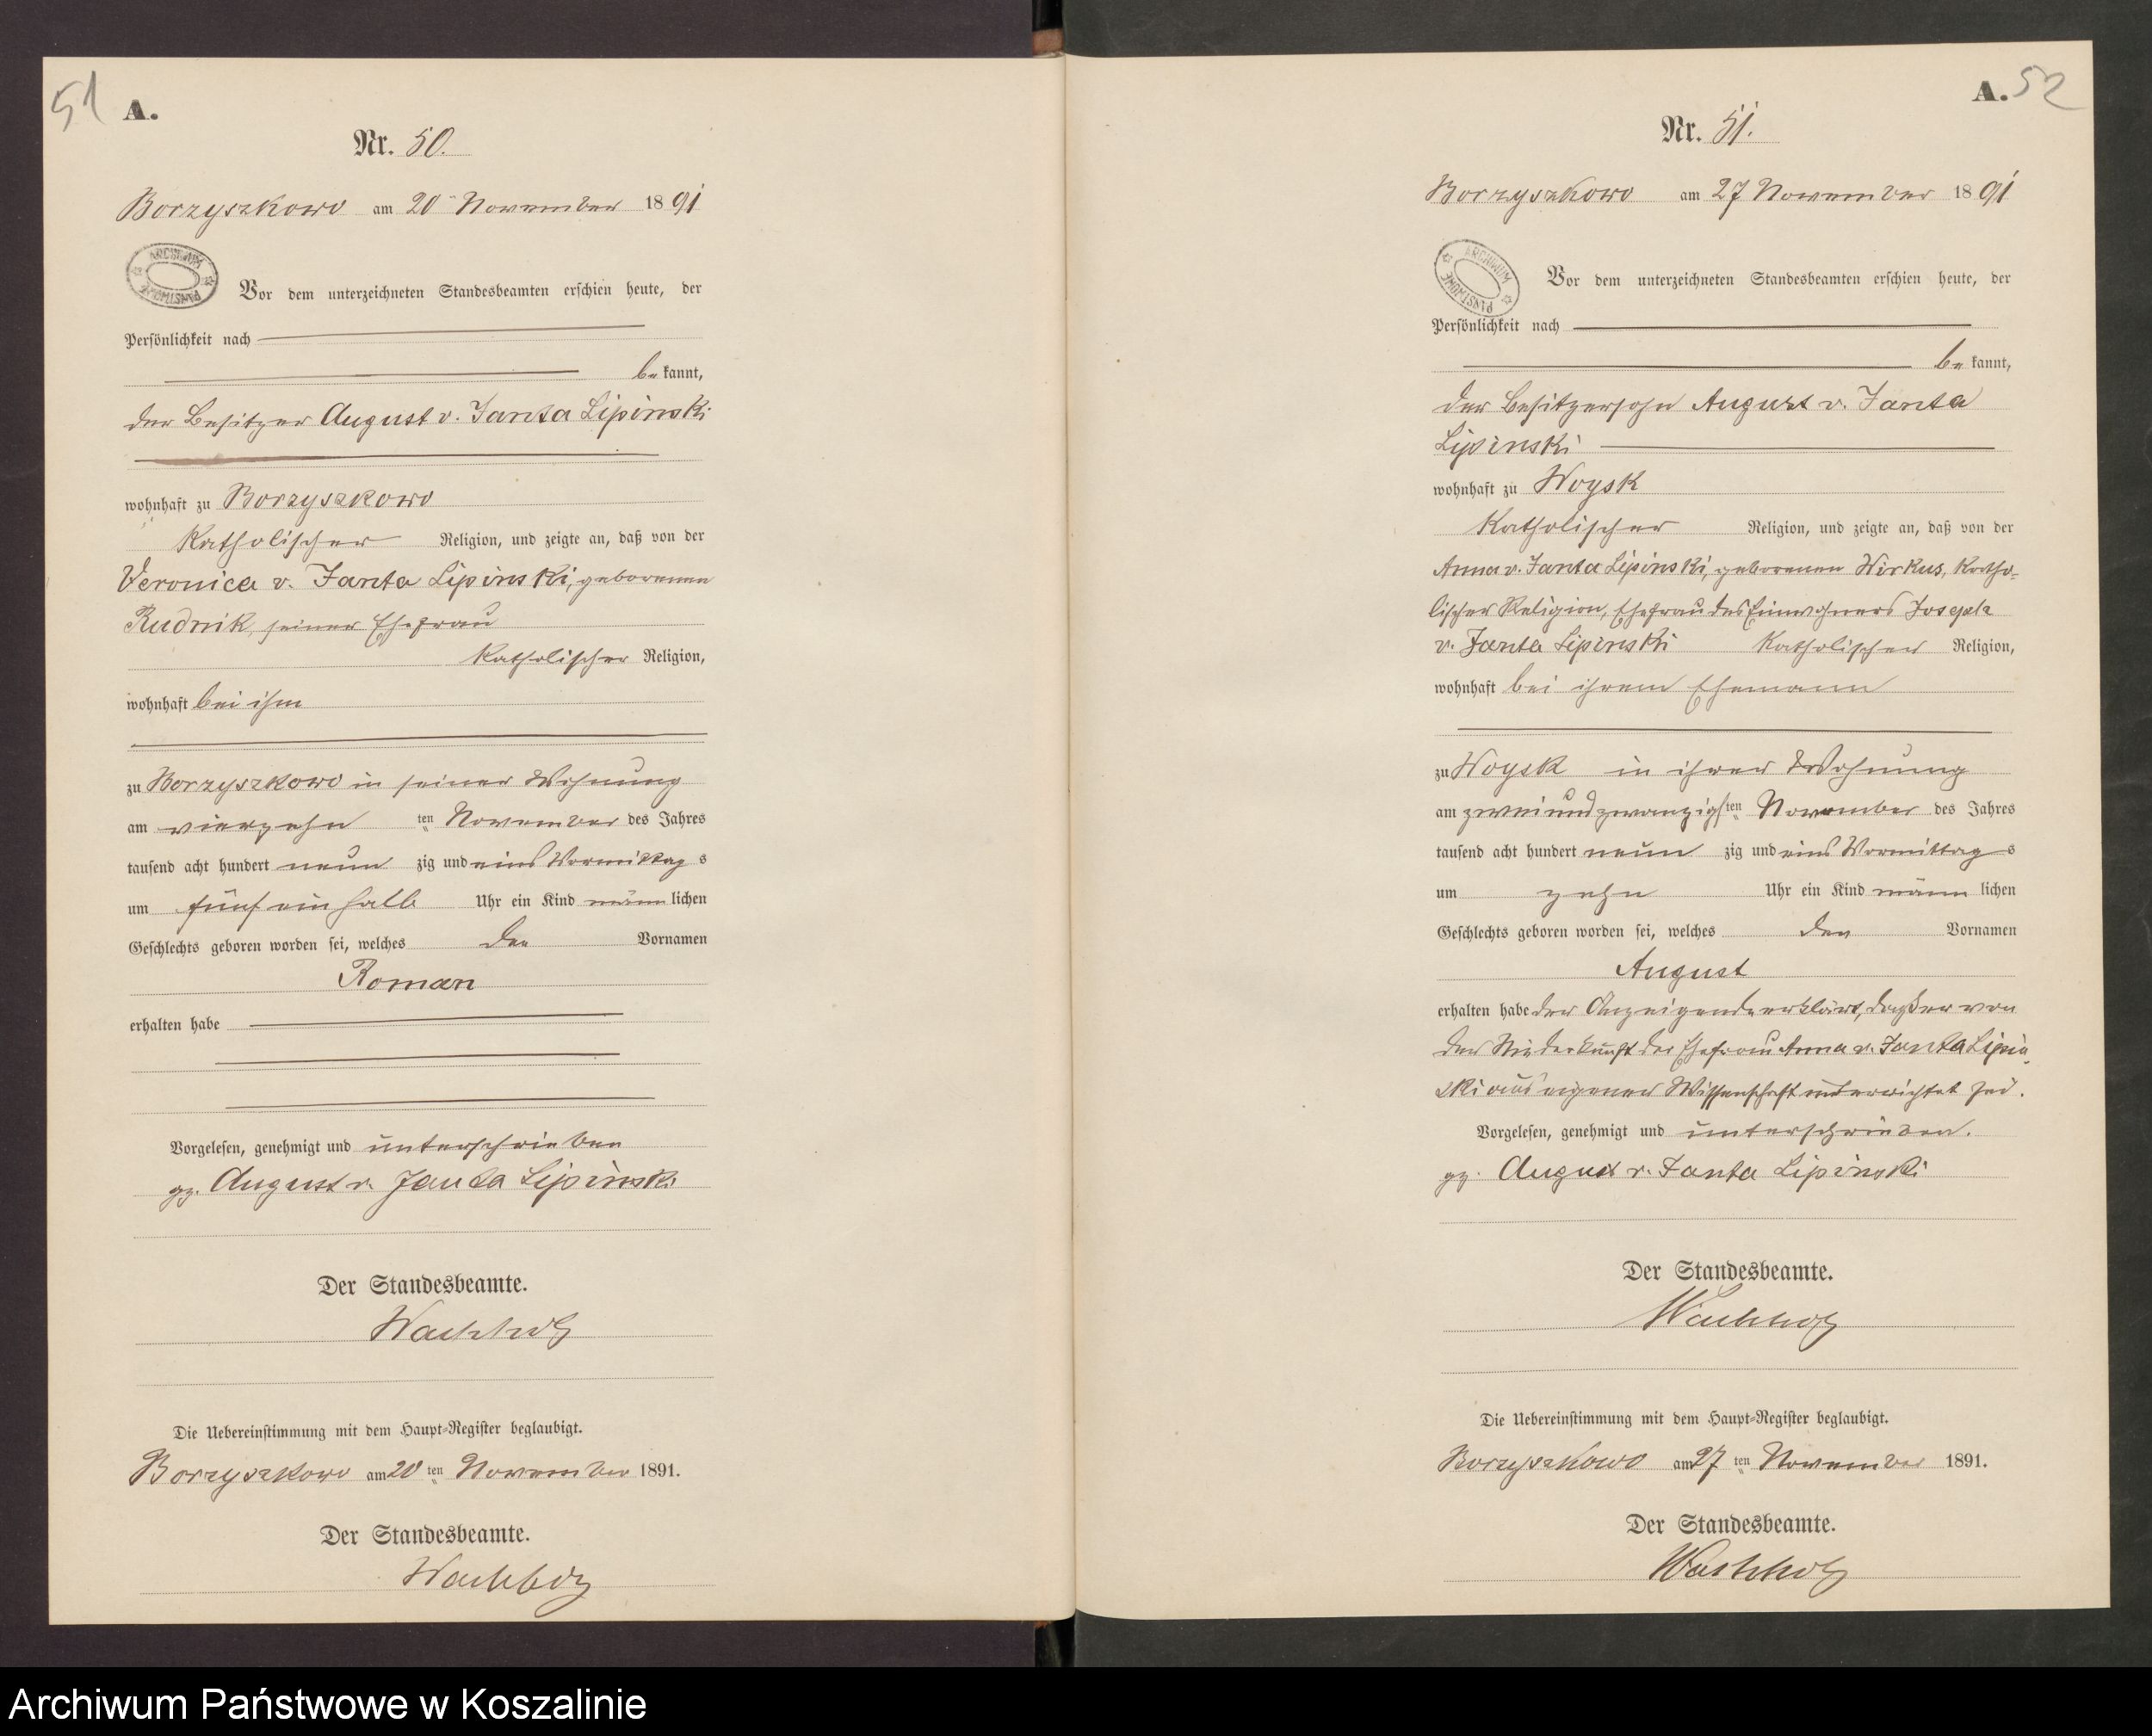 51
A.
Nr. 50.
Borzyszkowo am 20 November 1891
ARCHIWUM PAŃSTWOWE
Vor dem unterzeichneten Standesbeamten erschien heute, der
Persönlichkeit nach
be kannt,
der Besitzer August v. Janta Lipinski
wohnhaft zu Borzyszkowo
Katholischer Religion, und zeigte an, daß von der
Veronica v. Janta Lipinski, geborenen
Rudnik, seiner Ehefrau
Katholischer Religion,
wohnhaft bei ihm
zu Borzyszkowo in seiner Wohnung
am vierzehn ten November des Jahres
tausend acht hundert neun zig und eins Vormittag s
um fünf ein halb Uhr ein Kind männ lichen
Geschlechts geboren worden sei, welches den Vornamen
Roman
erhalten habe
Vorgelesen, genehmigt und unterschrieben
gz. August v. Janta Lipinski
Der Standesbeamte.
Wachholz
Die Uebereinstimmung mit dem Haupt-Register beglaubigt.
Borzyszkowo am 20 ten November 1891.
Der Standesbeamte.
Wachholz
A. 52
Nr. 51.
Borzyszkowo am 27 November 1891
ARCHIWUM PAŃSTWOWE
Vor dem unterzeichneten Standesbeamten erschien heute, der
Persönlichkeit nach
be kannt,
der Besitzersohn August v. Janta
Lipinski
wohnhaft zu Woysk
Katholischer Religion, und zeigte an, daß von der
Anna v. Janta Lipinski, geborenen Wirkus, Katho-
lischer Religion, Ehefrau des Einwohners Joseph
v. Janta Lipinski Katholischer Religion,
wohnhaft bei ihrem Ehemann
zu Woysk in ihrer Wohnung
am zweiundzwanzigs ten November des Jahres
tausend acht hundert neun zig und eins Vormittag s
um zehn Uhr ein Kind männ lichen
Geschlechts geboren worden sei, welches den Vornamen
August
erhalten habe der Anzeigende erklärt, daß er von
der Niederkunft der Ehefrau Anna v. Janta Lipin-
ski aus eigener Wissenschaft unterrichtet sei.
Vorgelesen, genehmigt und unterschrieben.
gz. August v. Janta Lipinski
Der Standesbeamte.
Wachholz
Die Uebereinstimmung mit dem Haupt-Register beglaubigt.
Borzyszkowo am 27 ten November 1891.
Der Standesbeamte.
Wachholz
Archiwum Państwowe w Koszalinie